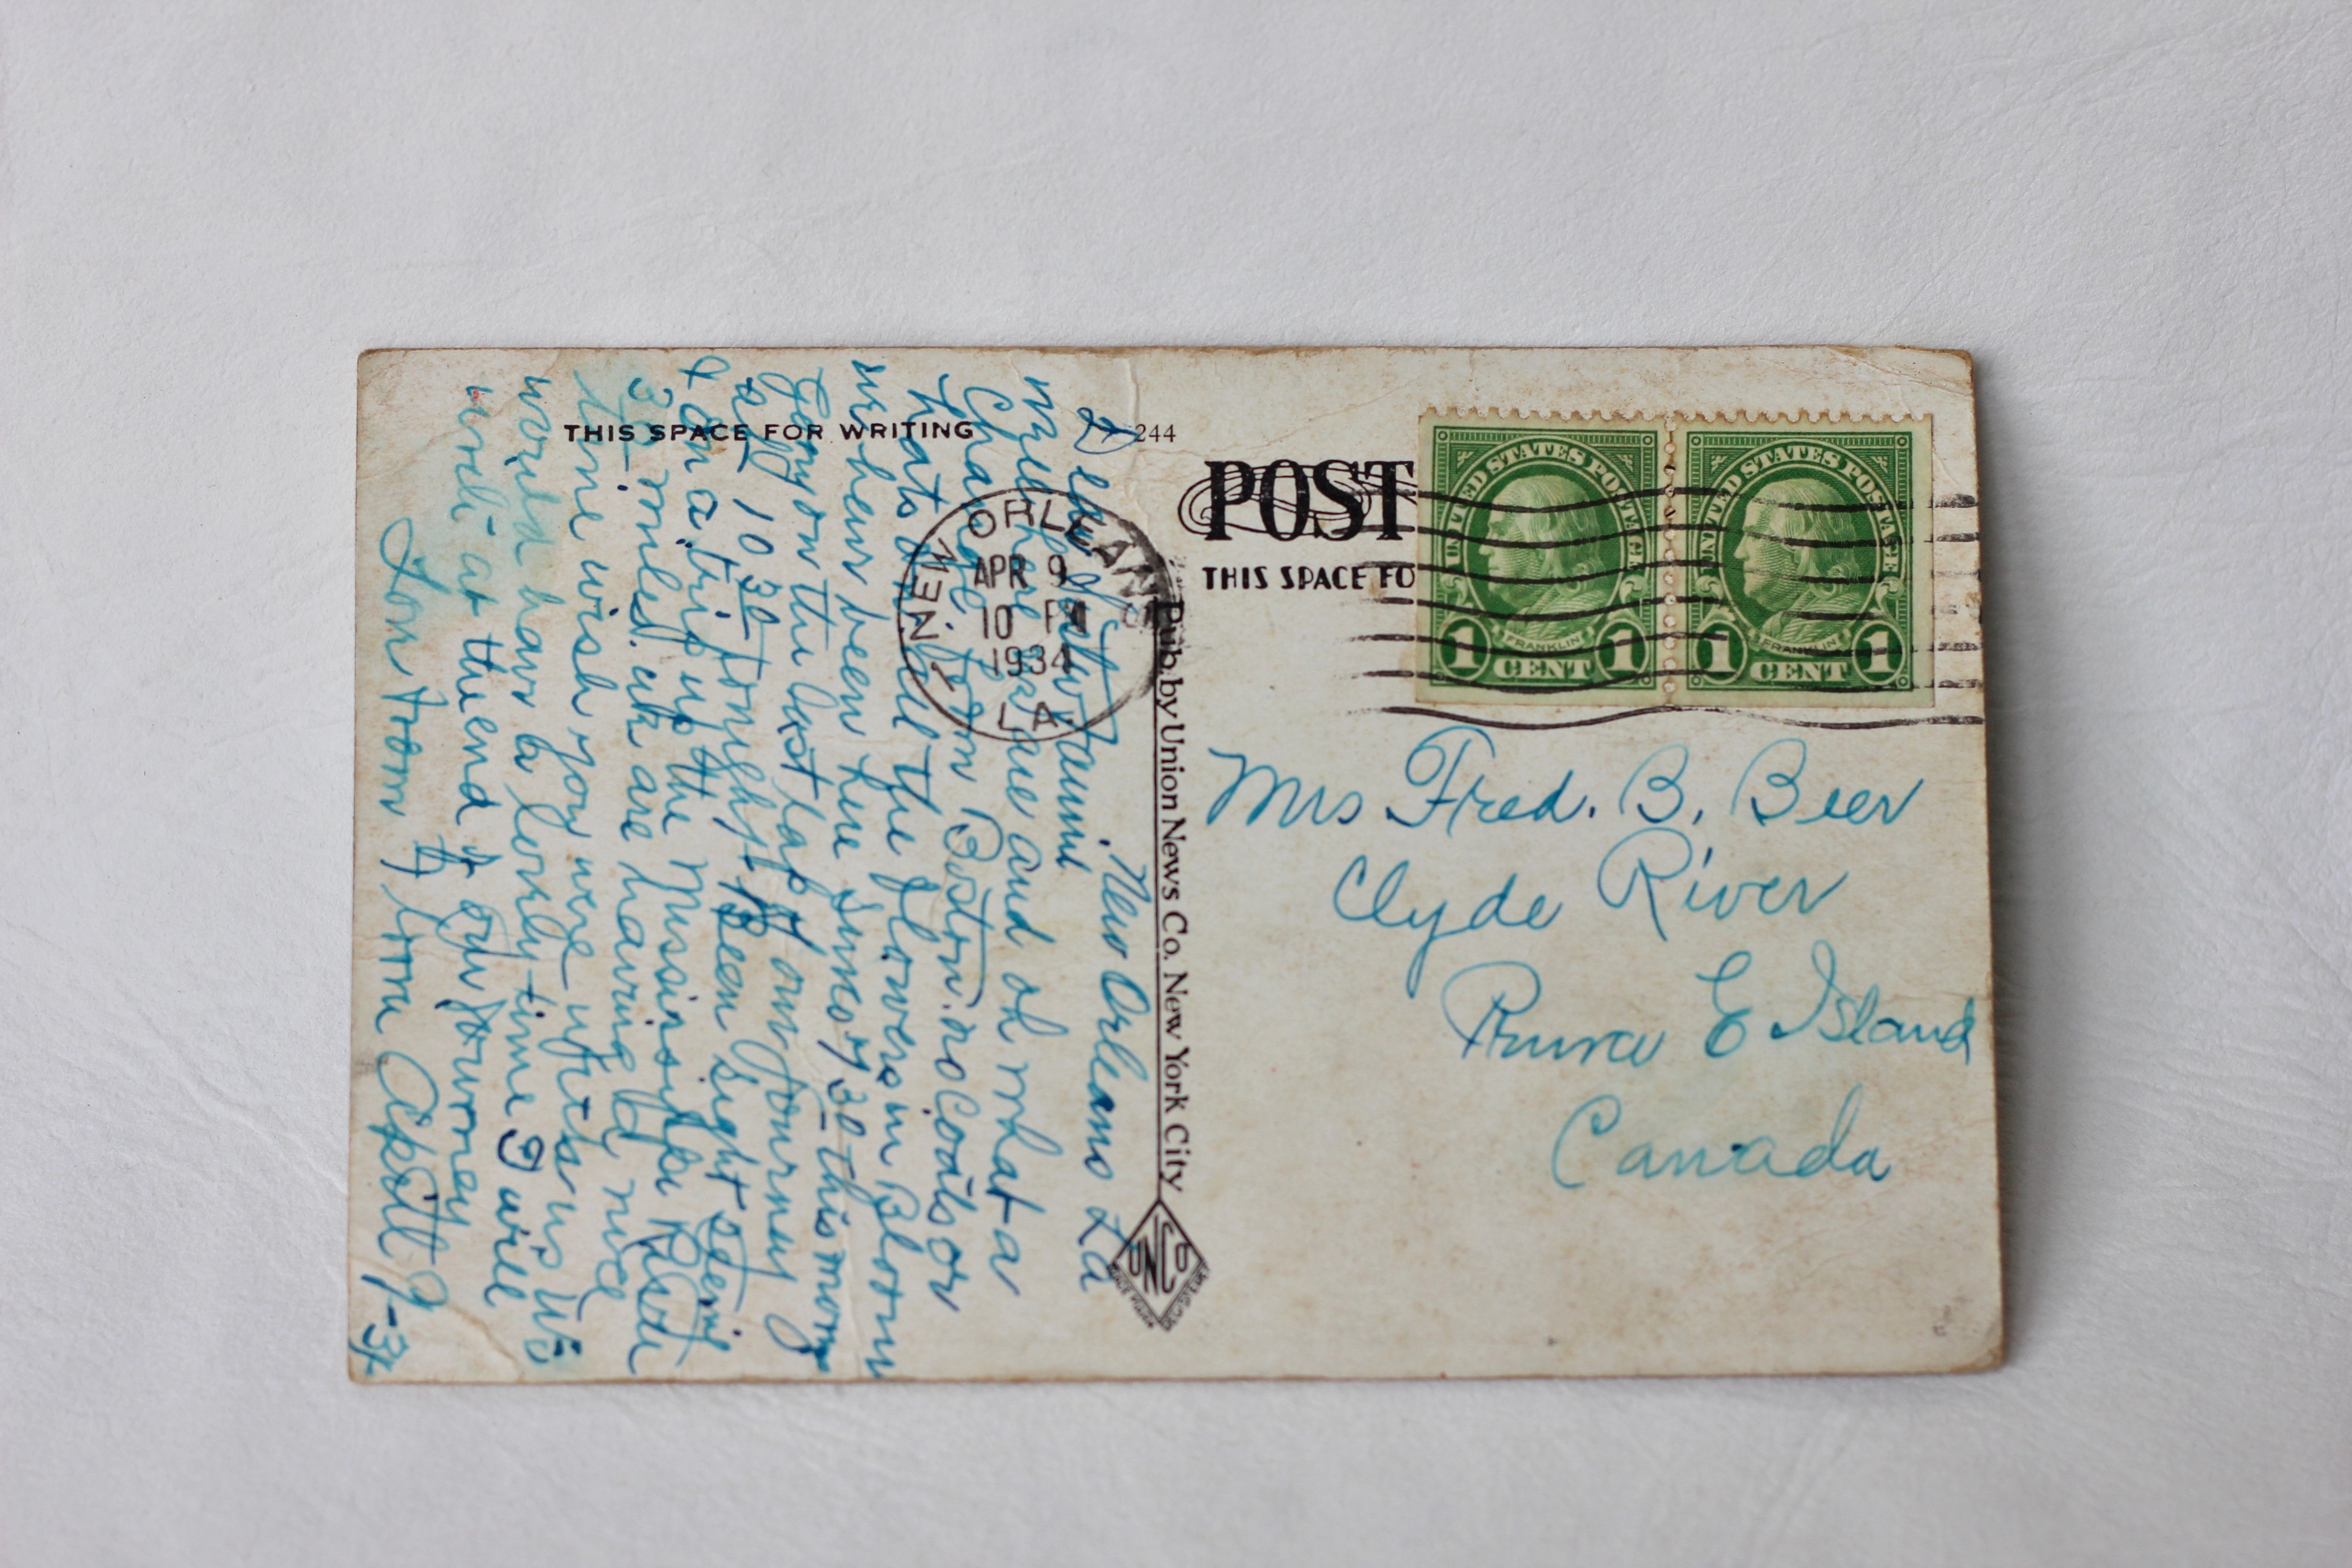 THIS SPACE FOR WRITING
244
POST
THIS SPACE FO
UNITED STATES POSTAGE
FRANKLIN
1 CENT 1
UNITED STATES POSTAGE
FRANKLIN
1 CENT 1
NEW ORLEANS
APR 9
10 PM
1934
LA.
Pub. by Union News Co. New York City
Mrs Fred. B. Beer
Clyde River
Prince E Island
Canada
New Orleans La
Dear
Well here we are and oh what a
Change from Boston. no Coats or
hats all the flowers in Bloom
we have been here since 7 30 this morn
going on the last lap of our journey
at 10 30 tonight. Been sight seeing
& on a trip up the Mississippi River
30 miles. we are having a nice
time wish you were with us we
would have a lovely time I will
write at the end of our journey
Love from
April 9-34